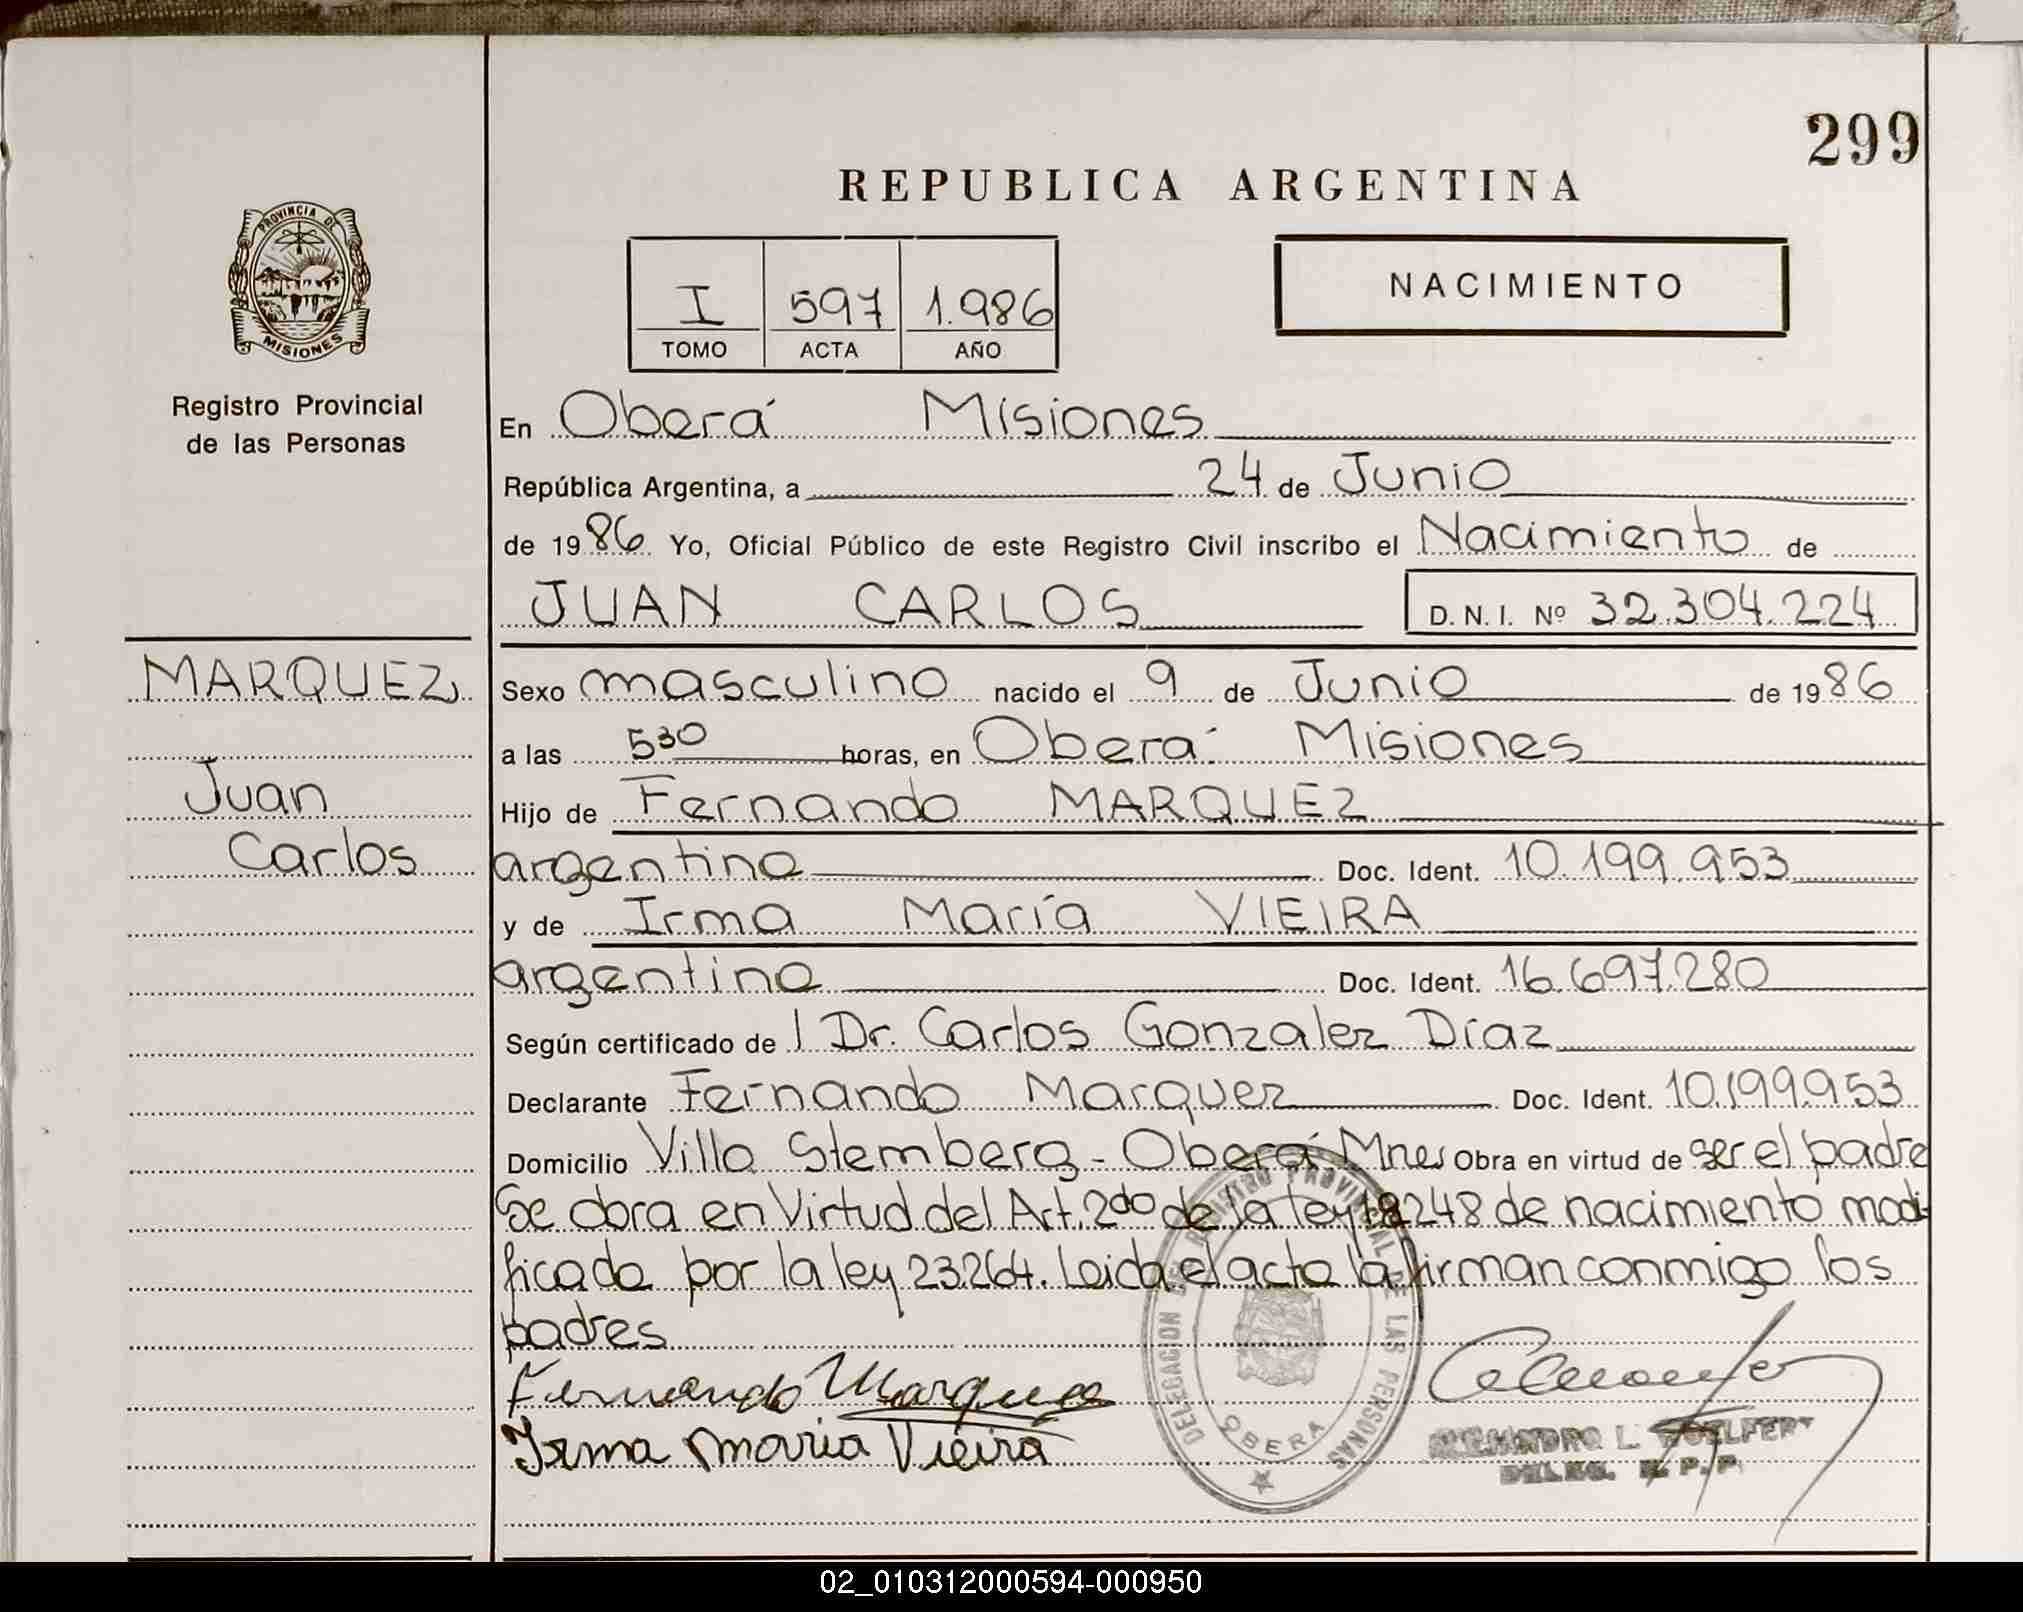 299
REPUBLICA ARGENTINA
PROVINCIA DE
MISIONES
I 597 1.986
TOMO ACTA AÑO
NACIMIENTO
Registro Provincial
de las Personas
En Oberá Misiones
República Argentina, a 24 de Junio
de 1986 Yo, Oficial Público de este Registro Civil inscribo el Nacimiento de
JUAN CARLOS D. N. I. Nº 32.304.224
MARQUEZ
Juan
Carlos
Sexo masculino nacido el 9 de Junio de 1986
a las 5 30 horas, en Oberá Misiones
Hijo de Fernando MARQUEZ
argentino Doc. Ident. 10.199.953
y de Irma María VIEIRA
argentina Doc. Ident. 16.697.280
Según certificado de l Dr. Carlos Gonzalez Díaz
Declarante Fernando Marquez Doc. Ident. 10.199.953
Domicilio Villa Stemberg - Oberá Mnes Obra en virtud de ser el padre
Se obra en Virtud del Art. 2do de la ley 18248 de nacimiento modi
ficada por la ley 23.264. Leida el acta la firman conmigo los
padres
Fernando Marquez
Irma Maria Vieira
DELEGACION DEL REGISTRO PROVINCIAL DE LAS PERSONAS
OBERA
DELEG. R. P. P.
02_010312000594-000950